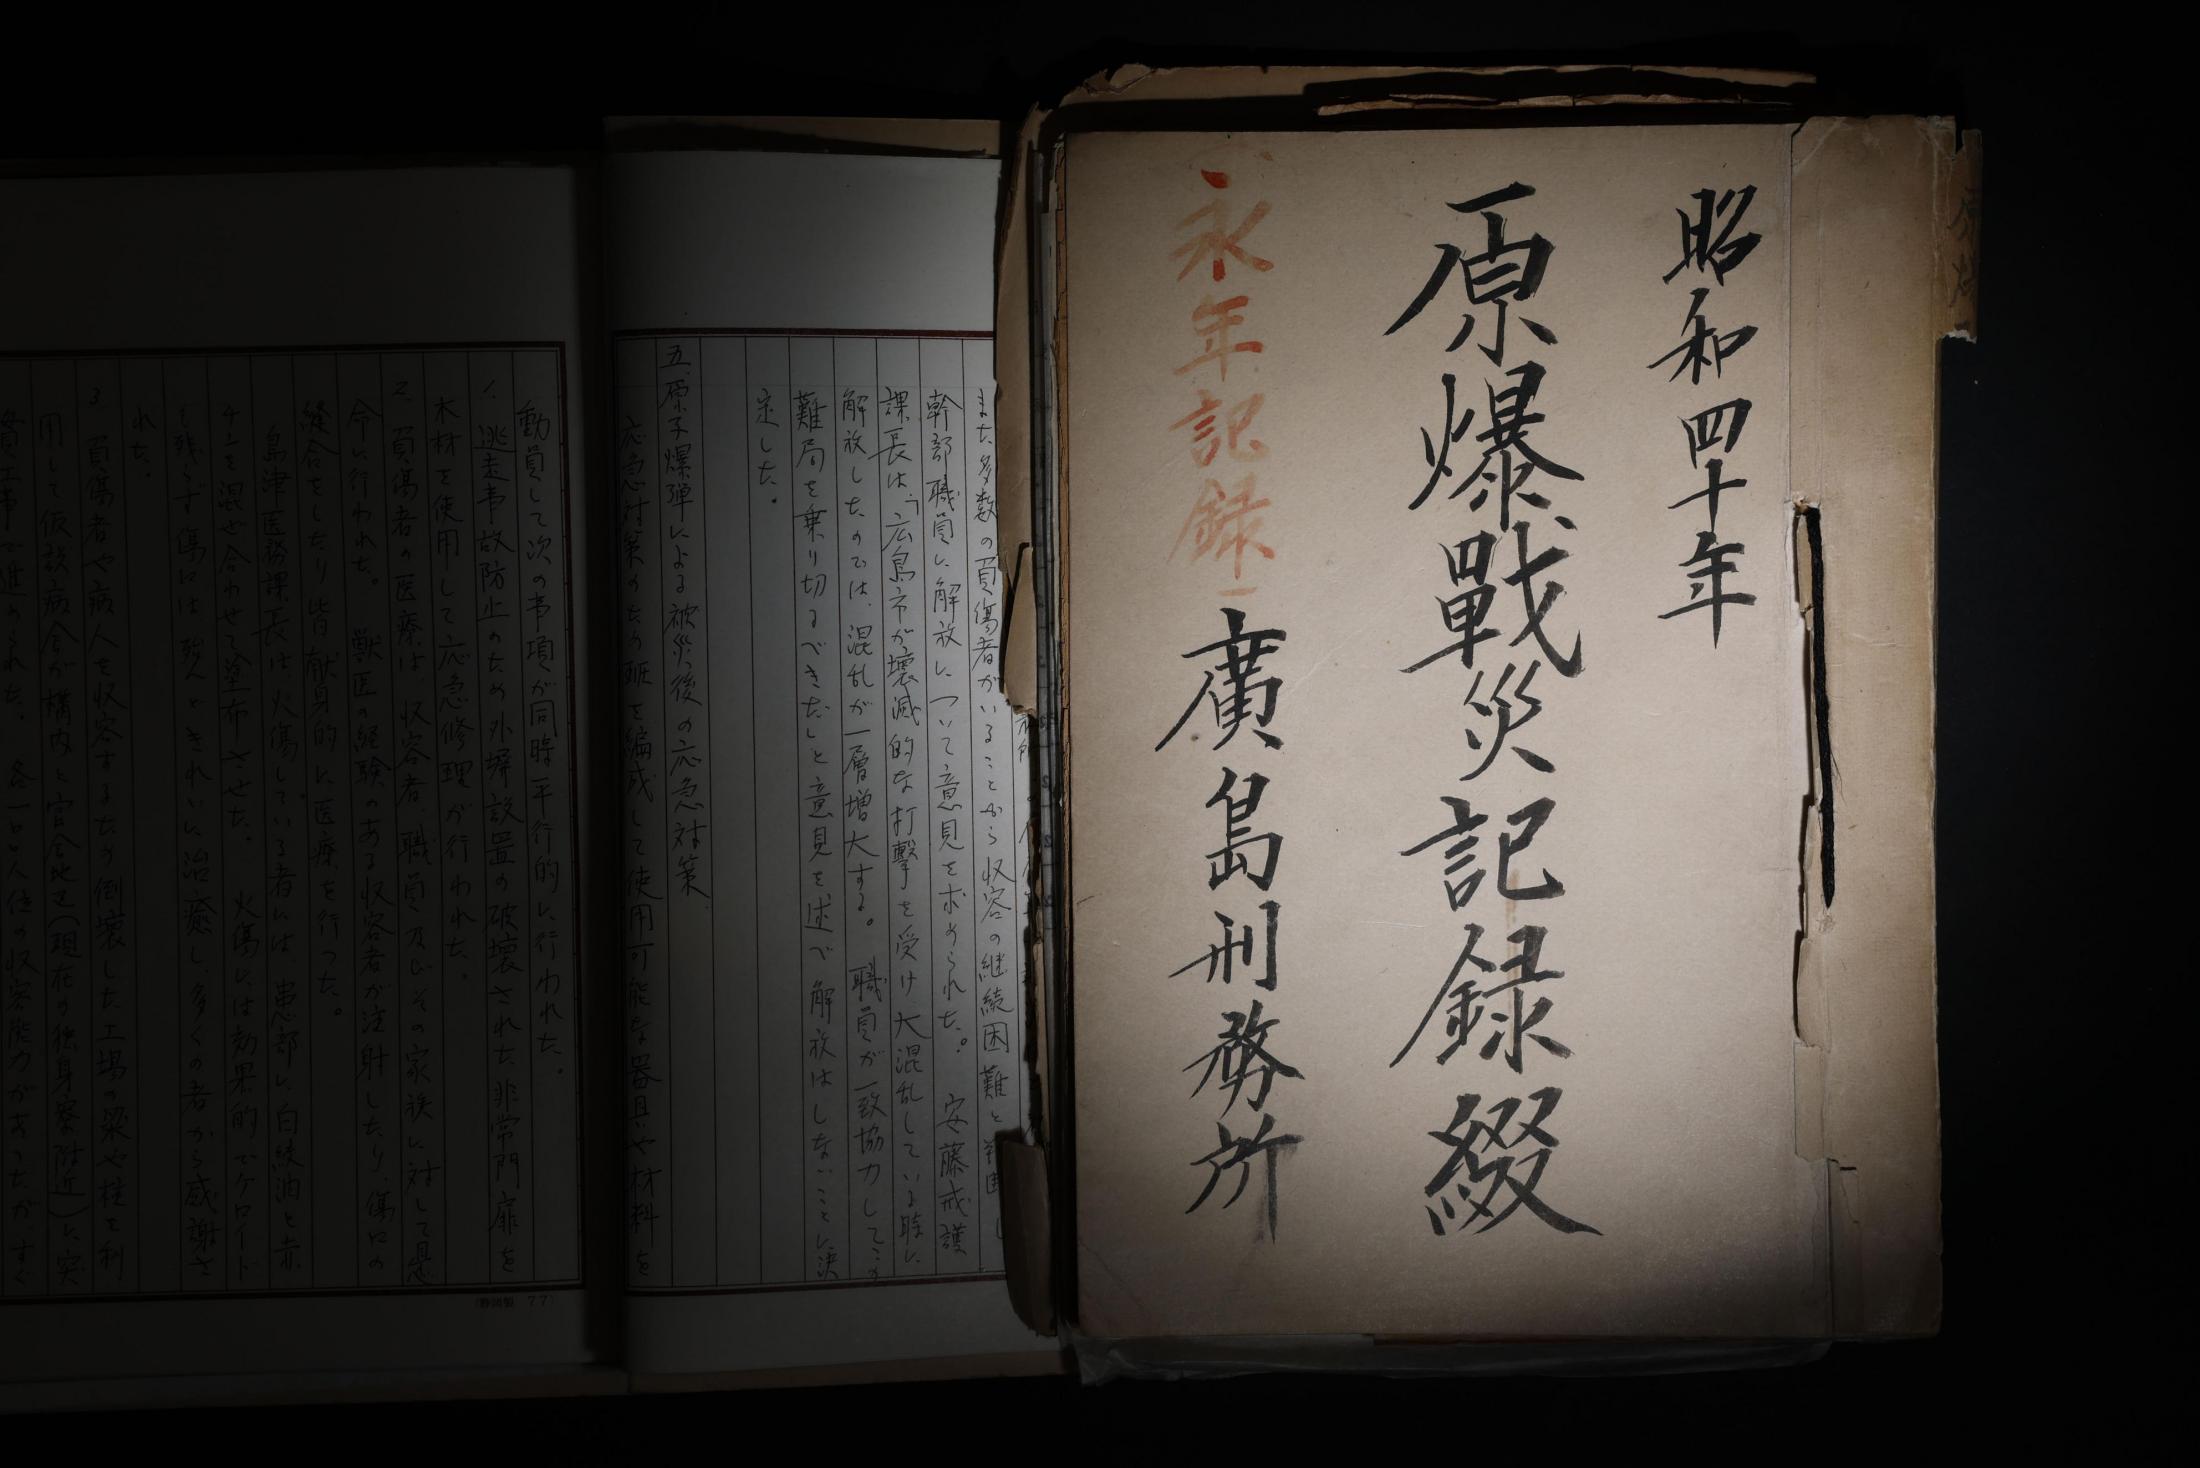 昭和四十年
原爆戰災記録綴
永年記録
廣島刑務所
また多数の負傷者がいることから収容の継続困難と
幹部職員に解放について意見を求められた。 安藤戒護
課長は「広島市が壊滅的な打撃を受け大混乱している時に
解放したのでは、混乱が一層増大する。 職員が一致協力してこの
難局を乗り切るべきだ」と意見を述べ解放はしないことに決
定した。
五、原子爆弾による被災後の応急対策
応急対策のため班を編成して使用可能な器具や材料を
動員して次の事項が同時平行的に行われた。
1. 逃走事故防止のため外塀設置の破壊された非常門扉を
木材を使用して応急修理が行われた。
2. 負傷者の医療は、収容者、職員及びその家族に対して懸
命に行われた。 獣医の経験のある収容者が注射したり、傷口の
縫合をしたり皆献身的に医療を行った。
島津医務課長は、火傷している者には、患部に白絞油と赤
チンを混ぜ合わせて塗布させた。 火傷には効果的でケロイド
も残らず傷口は殆んどきれいに治癒し、多くの者から感謝さ
れた。
3. 負傷者や病人を収容するため倒壊した工場の梁や柱を利
用して仮設病舎が構内と官舎地区(現在の独身寮附近)に突
貫工事で進められた。 各一〇〇人位の収容能力があったが、すぐ
(静岡製 77)
原爆